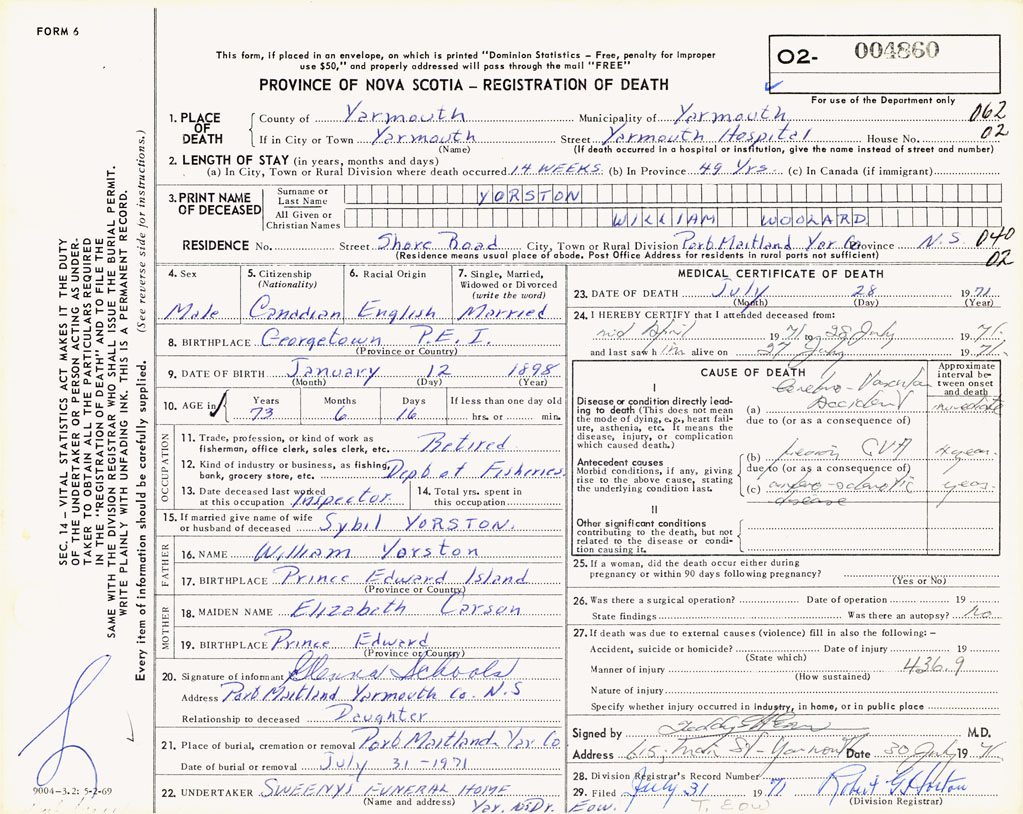 FORM 6
This form, if placed in an envelope, on which is printed "Dominion Statistics – Free, penalty for improper
use $50," and properly addressed will pass through the mail "FREE"
02- 004860
PROVINCE OF NOVA SCOTIA – REGISTRATION OF DEATH
For use of the Department only
1. PLACE OF DEATH
County of Yarmouth Municipality of Yarmouth 062
If in City or Town Yarmouth Street Yarmouth Hospital House No. 02
(Name) (If death occurred in a hospital or institution, give the name instead of street and number)
2. LENGTH OF STAY (in years, months and days)
(a) In City, Town or Rural Division where death occurred 14 WEEKS. (b) In Province 49 Yrs (c) In Canada (if immigrant)
3. PRINT NAME OF DECEASED
Surname or Last Name YORSTON
All Given or Christian Names WILLIAM WOOLARD
RESIDENCE No. Street Shore Road City, Town or Rural Division Port Maitland Yar Co Province N.S. 040
(Residence means usual place of abode. Post Office Address for residents in rural parts not sufficient) 02
4. Sex Male
5. Citizenship (Nationality) Canadian
6. Racial Origin English
7. Single, Married, Widowed or Divorced (write the word) Married
8. BIRTHPLACE Georgetown P.E.I.
(Province or Country)
9. DATE OF BIRTH January 12 1898
(Month) (Day) (Year)
10. AGE in Years 73 Months 6 Days 16 If less than one day old hrs. or min.
OCCUPATION
11. Trade, profession, or kind of work as fisherman, office clerk, sales clerk, etc. Retired
12. Kind of industry or business, as fishing, bank, grocery store, etc. Dept of Fisheries
13. Date deceased last worked at this occupation Inspector
14. Total yrs. spent in this occupation
15. If married give name of wife or husband of deceased Sybil YORSTON.
FATHER
16. NAME William Yorston
17. BIRTHPLACE Prince Edward Island
(Province or Country)
MOTHER
18. MAIDEN NAME Elizabeth Carson
19. BIRTHPLACE Prince Edward
(Province or Country)
20. Signature of informant Glenna Schools
Address Port Maitland Yarmouth Co. N.S
Relationship to deceased Daughter
21. Place of burial, cremation or removal Port Maitland Yar Co
Date of burial or removal July 31 - 1971
22. UNDERTAKER SWEENYS FUNERAL HOME
(Name and address) Yar. NS
MEDICAL CERTIFICATE OF DEATH
23. DATE OF DEATH July 28 1971
(Month) (Day) (Year)
24. I HEREBY CERTIFY that I attended deceased from:
mid April 1971 to 28 July 1971
and last saw him alive on 27 July 1971
CAUSE OF DEATH
Approximate interval between onset and death
I
Disease or condition directly leading to death (This does not mean the mode of dying, e.g., heart failure, asthenia, etc. It means the disease, injury, or complication which caused death.)
(a) Cerebro-Vascular Accident immediate
due to (or as a consequence of)
Antecedent causes
Morbid conditions, if any, giving rise to the above cause, stating the underlying condition last.
(b) CVA
due to (or as a consequence of)
(c) arterio-sclerotic disease years
II
Other significant conditions contributing to the death, but not related to the disease or condition causing it.
25. If a woman, did the death occur either during
pregnancy or within 90 days following pregnancy?
(Yes or No)
26. Was there a surgical operation? Date of operation 19
State findings Was there an autopsy? No
27. If death was due to external causes (violence) fill in also the following: –
Accident, suicide or homicide? Date of injury 19
(State which)
Manner of injury 436.9
(How sustained)
Nature of injury
Specify whether injury occurred in industry, in home, or in public place
Signed by M.D.
Address 615 Main St - Yarmouth Date 30 July 1971
28. Division Registrar's Record Number
29. Filed July 31 1971 Robert G Horton
(Division Registrar)
T. Eow
SEC. 14 – VITAL STATISTICS ACT MAKES IT THE DUTY
OF THE UNDERTAKER OR PERSON ACTING AS UNDER-
TAKER TO OBTAIN ALL THE PARTICULARS REQUIRED
IN THE "REGISTRATION OF DEATH" AND TO FILE THE
SAME WITH THE DIVISION REGISTRAR WHO SHALL ISSUE THE BURIAL PERMIT.
WRITE PLAINLY WITH UNFADING INK. THIS IS A PERMANENT RECORD.
Every item of information should be carefully supplied. (See reverse side for instructions.)
9004–3.2: 5-2-69